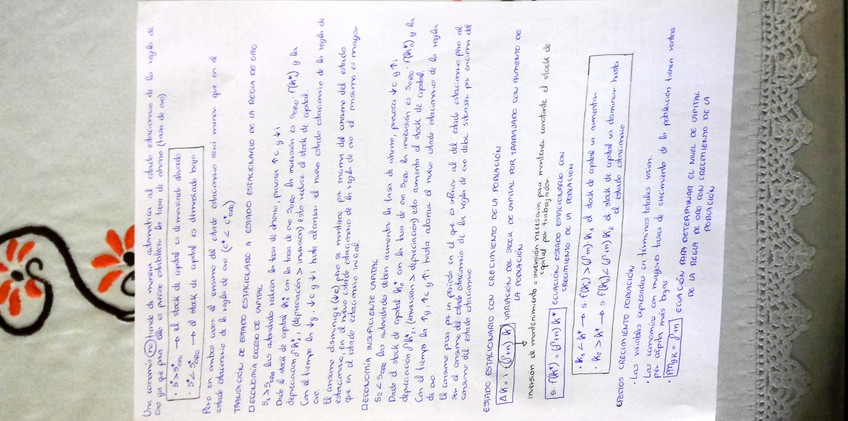 Una economía (no) tiende de manera automática al estado estacionario de la regla de
oro ya que para ello es preciso establecer la tasa de ahorro (tasa de oro)
· s* > s*oro → el stock de capital es demasiado elevado
· s* < s*oro → el stock de capital es demasiado bajo
Pero en ambos casos el consumo del estado estacionario será menor que en el
estado estacionario de la regla de oro (c* < c*oro)
TRANSICIÓN DE ESTADO ESTACIONARIO A ESTADO ESTACIONARIO DE LA REGLA DE ORO
□ ECONOMÍA EXCESO DE CAPITAL
S1 > Soro las autoridades reducen la tasa de ahorro, provoca ↑c y ↓i
Dado el stock de capital con la tasa de oro Soro la inversión es Soro · f(k*) y la
depreciación (depreciación > inversión) esto reduce el stock de capital
Con el tiempo la ↓y, ↓c y ↓i hasta alcanzar el nuevo estado estacionario de la regla de
oro
El consumo disminuye (↓c) pero se mantiene por encima del consumo del estado
estacionario, en el nuevo estado estacionario de la regla de oro el consumo es mayor
que en el estado estacionario inicial.
□ ECONOMÍA INSUFICIENTE CAPITAL
S2 < Soro las autoridades deben aumentar la tasa de ahorro, provoca ↓c y ↑i
Dado el stock de capital con la tasa de oro Soro la inversión es Soro · f(k*) y la
depreciación (inversión > depreciación) esto aumenta el stock de capital.
Con el tiempo la ↑y, ↑c y ↑i hasta alcanzar el nuevo estado estacionario de la regla
de oro
El consumo pasa por un periodo en el que es inferior al del estado estacionario pero al
ser el consumo del estado estacionario de la regla de oro debe situarse por encima del
consumo del estado estacionario
ESTADO ESTACIONARIO CON CRECIMIENTO DE LA POBLACIÓN
Δk = i - (δ+n) k VARIACIÓN DEL STOCK DE CAPITAL POR TRABAJADOR CON AUMENTO DE
LA POBLACIÓN
inversión de mantenimiento = inversión necesaria para mantener constante el stock de
capital por trabajador
s · f(k*) = (δ+n) k* ECUACIÓN ESTADO ESTACIONARIO CON
CRECIMIENTO DE LA POBLACIÓN
· k1 < k* → s · f(k1) > (δ+n) k1 el stock de capital va aumentar
· k2 > k* → s · f(k2) < (δ+n) k2 el stock de capital va disminuir hasta
el estado estacionario
EFECTOS CRECIMIENTO POBLACIÓN
· Las variables expresadas en términos totales varían.
· Las economías con mayores tasas de crecimiento de la población tienen rentas
per cápita más bajas
· PMgK = δ+n ECUACIÓN PARA DETERMINAR EL NIVEL DE CAPITAL
DE LA REGLA DE ORO CON CRECIMIENTO DE LA
POBLACIÓN